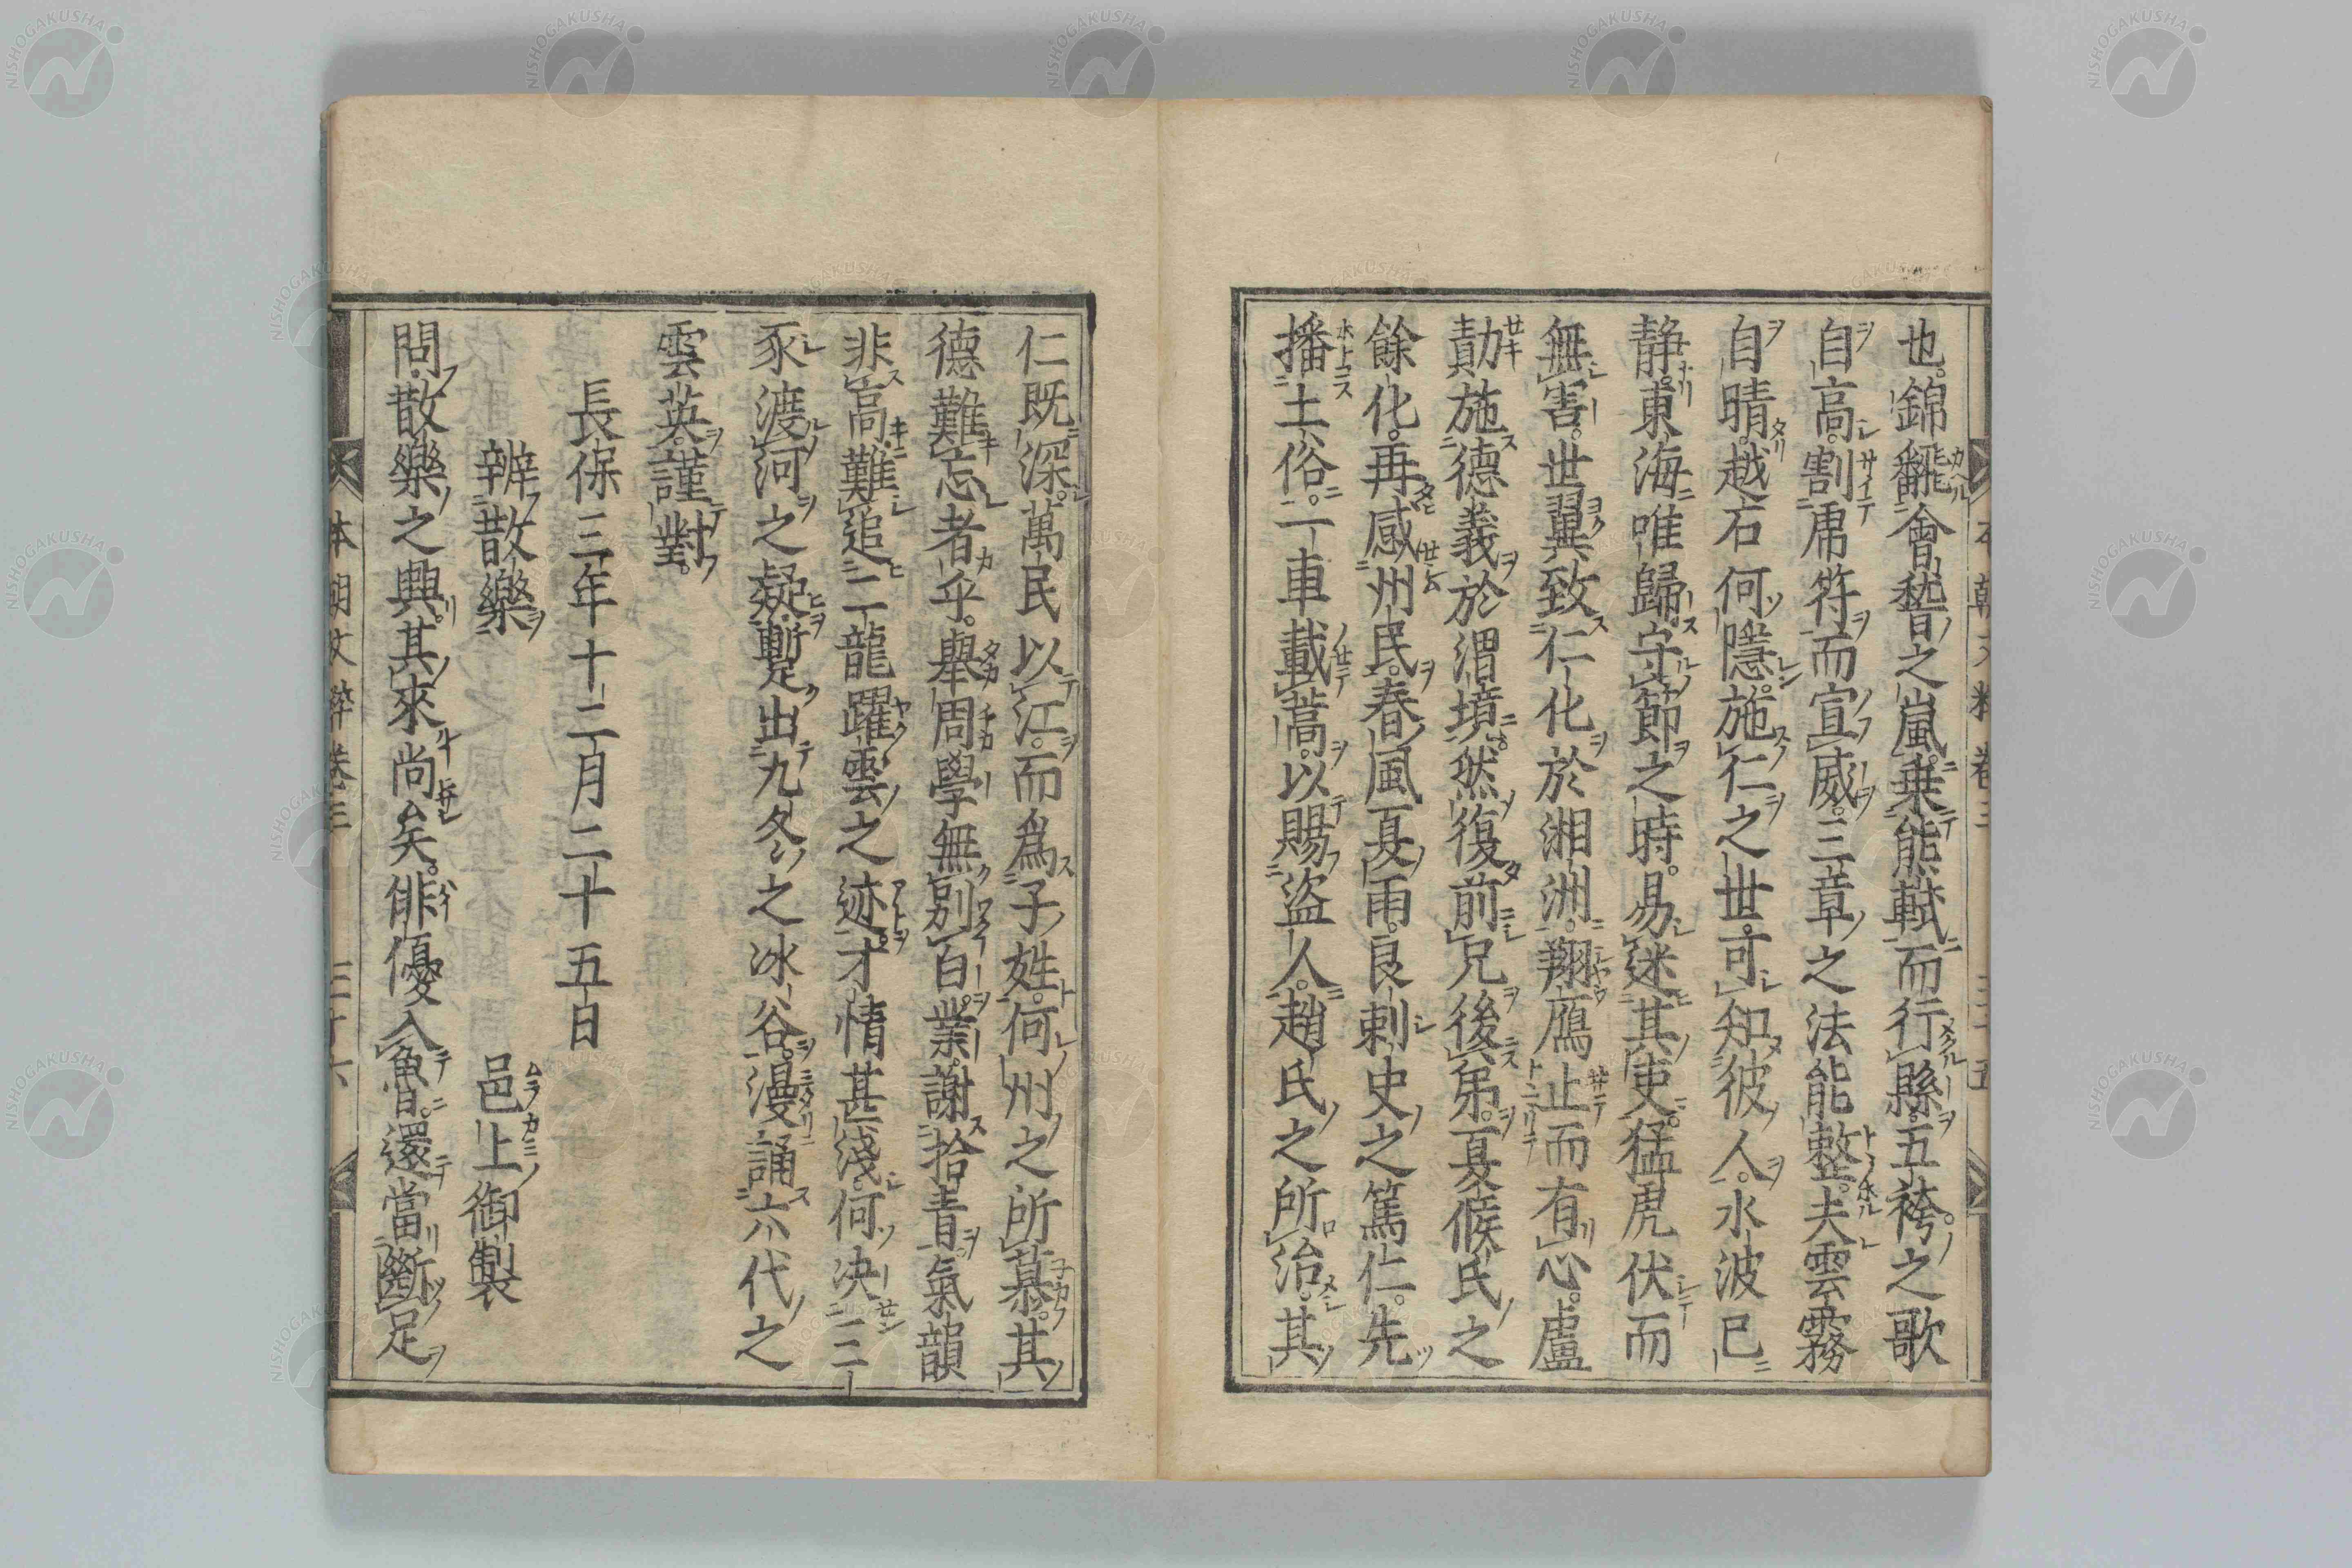 也。錦飜會稽之嵐。乗熊軾而行縣。五袴之歌
自高。割虎符而宣威。三章之法能整。夫雲霧
自晴。越石何隱。施仁之世。可知彼人。水波已
静。東海唯歸。守節之時。易迷其吏。猛虎伏而
無害。世翼致仁化於湘洲。翔鴈止而有心。盧
勣施德義於渭境。然復前兄後弟。夏候氏之
餘化。再感州民。春風夏雨。良刺史之篤仁。先
播土俗。一車載蒿。以賜盗人。趙氏之所治。其
仁既深。萬民以江。而爲子姓。何州之所慕。其
德難忘者乎。舉周學無別。白業謝拾青。氣韻
非高。難追二龍躍雲之迹。才情甚淺。何決三
豕渡河之疑。暫出九冬之冰谷。漫誦六代之
雲英。謹對。
長保三年十二月二十五日
辨散樂 邑上御製
問。散樂之興。其來尚矣。俳優入魯。還當斷足
本朝文粹卷三 三十五
本朝文粹卷三 三十六
NISHOGAKUSHA